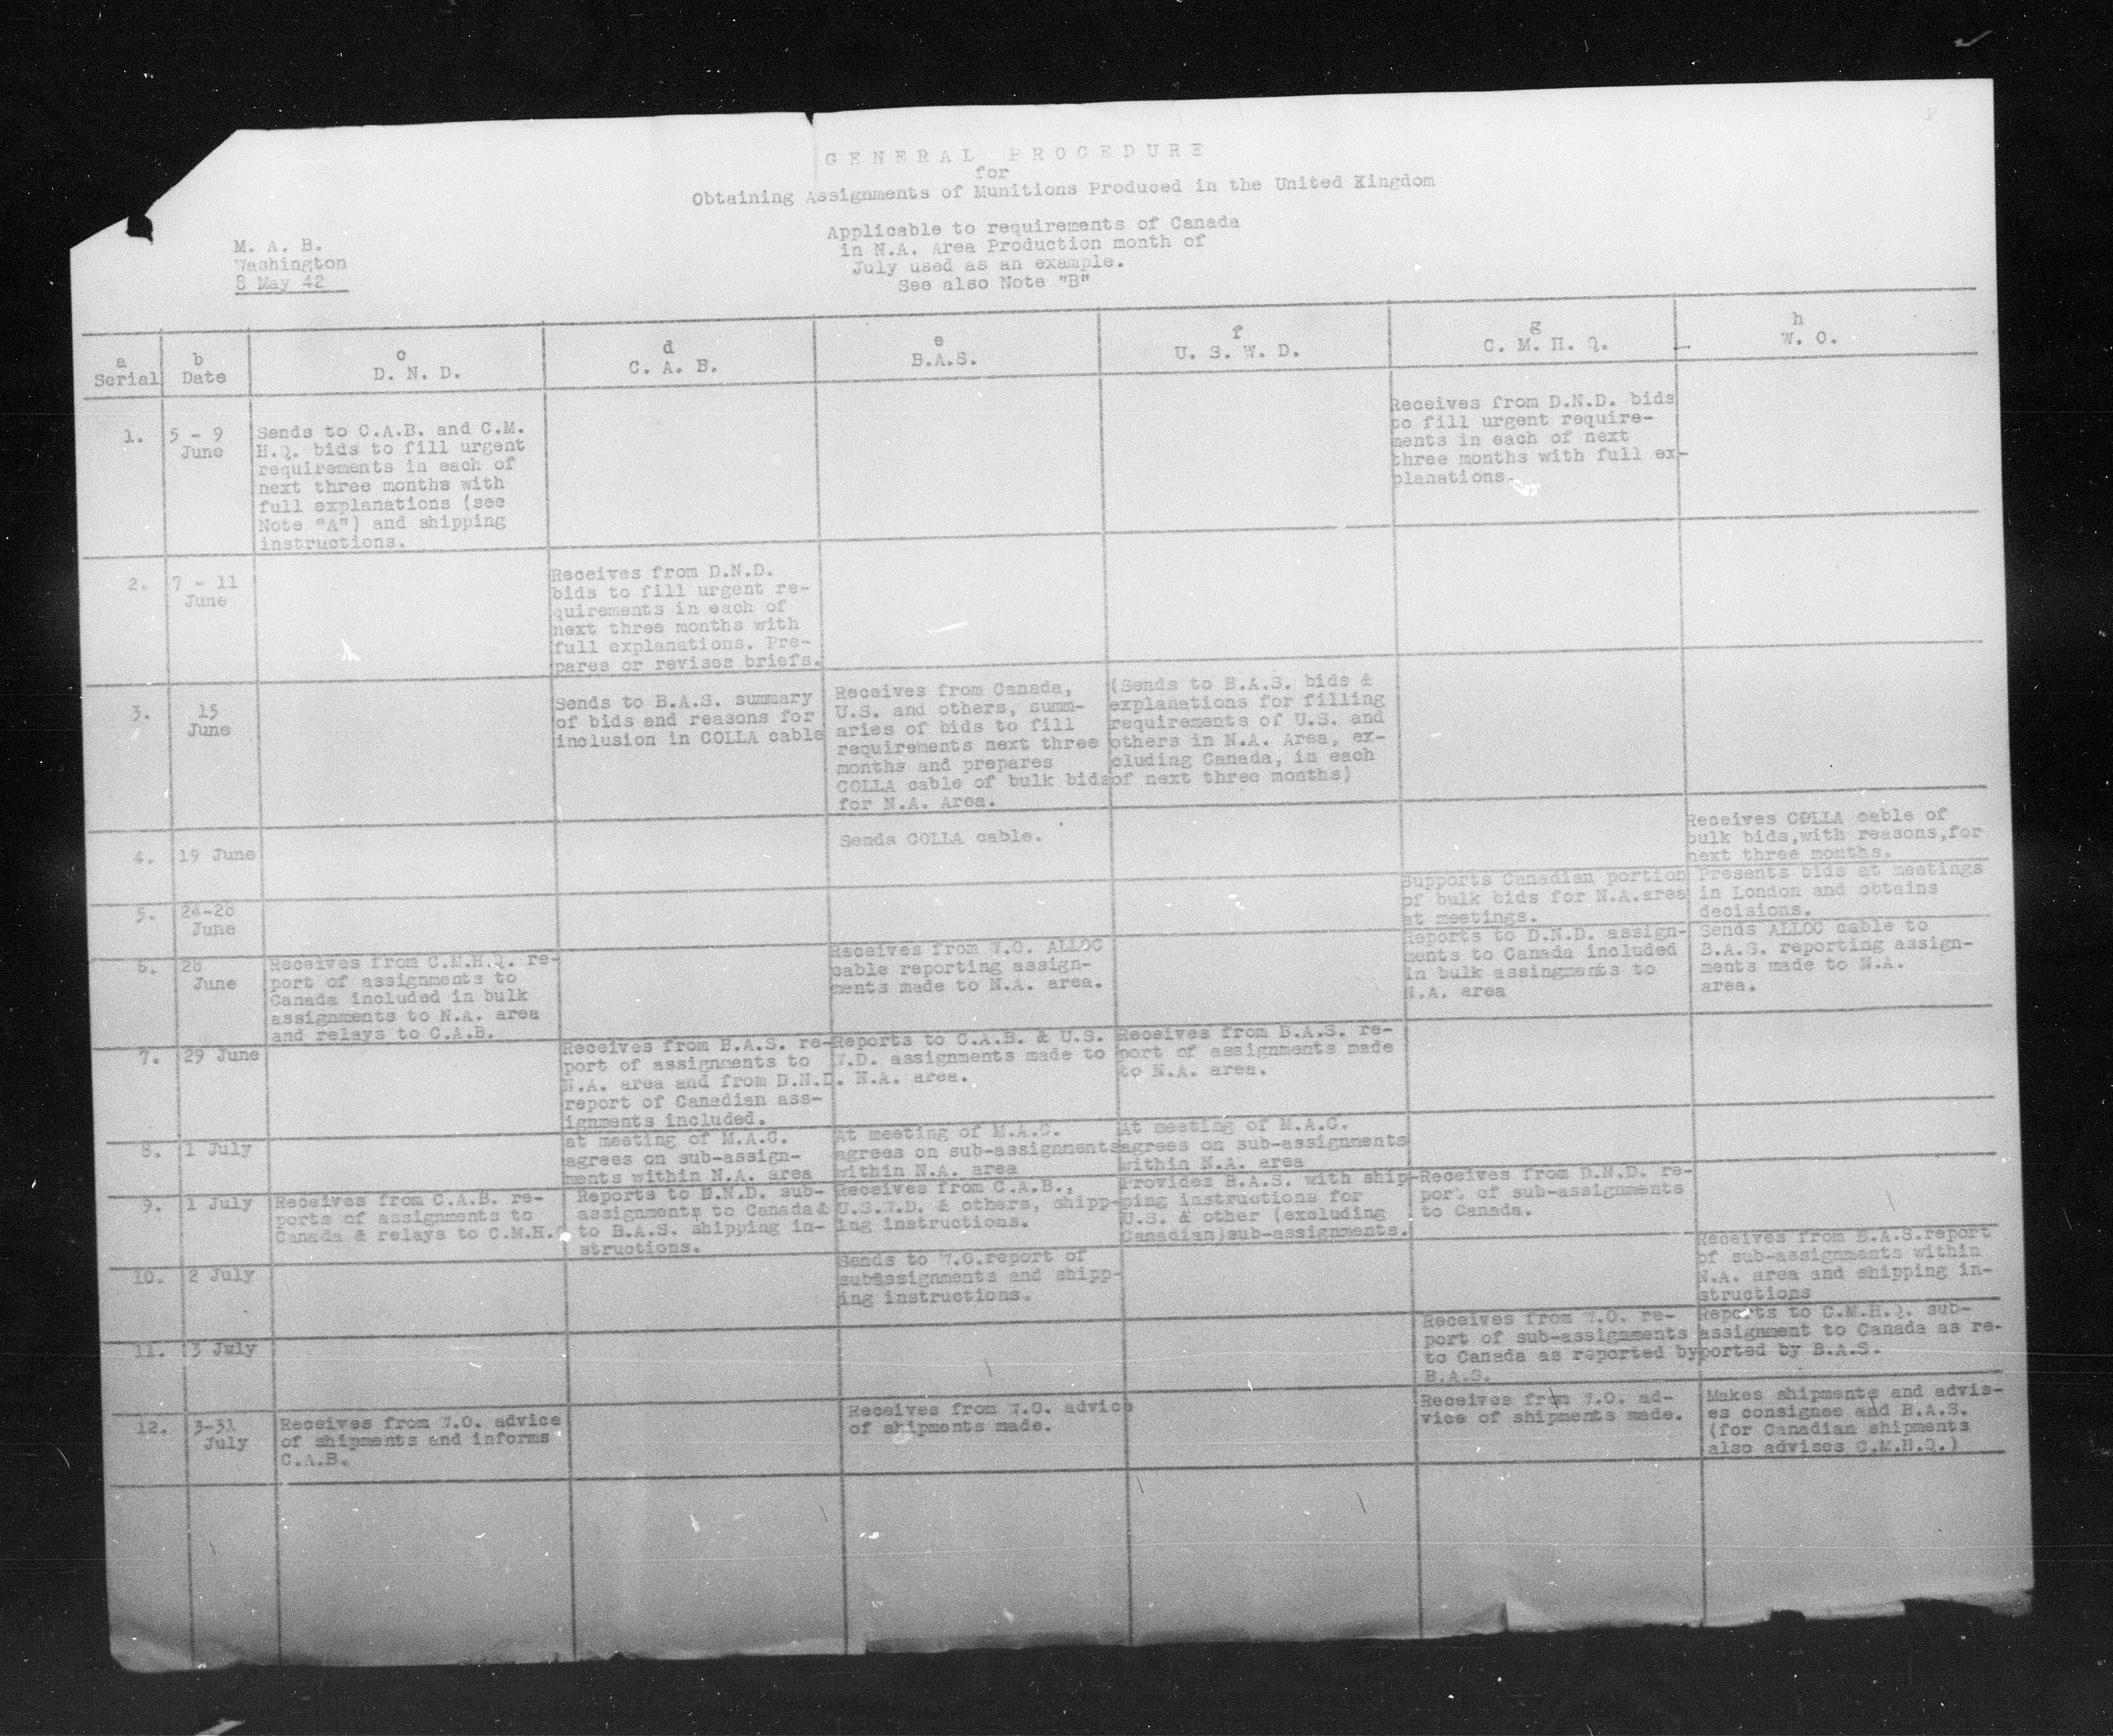 G E N E R A L   P R O C E D U R E
for
Obtaining Assignments of Munitions Produced in the United Kingdom
Applicable to requirements of Canada
in N.A. Area Production month of
July used as an example.
See also Note "B"
M. A. B.
Washington
8 May 42
a
Serial
b
Date
c
D. N. D.
d
C. A. B.
e
B.A.S.
f
U. S. W. D.
g
C. M. H. Q.
h
W. O.
1.
5 - 9
June
Sends to C.A.B. and C.M.
H.Q. bids to fill urgent
requirements in each of
next three months with
full explanations (see
Note "A") and shipping
instructions.
Receives from D.N.D. bids
to fill urgent require-
ments in each of next
three months with full ex-
planations.
2.
7 - 11
June
Receives from D.N.D.
bids to fill urgent re-
quirements in each of
next three months with
full explanations. Pre-
pares or revises briefs.
3.
15
June
Sends to B.A.S. summary
of bids and reasons for
inclusion in COLLA cable
Receives from Canada,
U.S. and others, summ-
aries of bids to fill
requirements next three
months and prepares
COLLA cable of bulk bids
for N.A. Area.
(Sends to B.A.S. bids &
explanations for filling
requirements of U.S. and
others in N.A. Area, ex-
cluding Canada, in each
of next three months)
4.
19 June
Sends COLLA cable.
Receives COLLA cable of
bulk bids,with reasons,for
next three months.
5.
24-28
June
Supports Canadian portion
of bulk bids for N.A.area
at meetings.
Presents bids at meetings
in London and obtains
decisions.
6.
28
June
Receives from C.M.H.Q. re-
port of assignments to
Canada included in bulk
assignments to N.A. area
and relays to C.A.B.
Receives from W.O. ALLOC
cable reporting assign-
ments made to N.A. area.
Reports to D.N.D. assign-
ments to Canada included
in bulk assingments to
N.A. area
Sends ALLOC cable to
B.A.S. reporting assign-
ments made to N.A.
area.
7.
29 June
Receives from B.A.S. re-
port of assignments to
N.A. area and from D.N.D.
report of Canadian ass-
ignments included.
Reports to C.A.B. & U.S.
W.D. assignments made to
N.A. area.
Receives from B.A.S. re-
port of assignments made
to N.A. area.
8.
1 July
at meeting of M.A.C.
agrees on sub-assign-
ments within N.A. area
At meeting of M.A.C.
agrees on sub-assignments
within N.A. area
At meeting of M.A.C.
agrees on sub-assignments
within N.A. area
9.
1 July
Receives from C.A.B. re-
ports of assignments to
Canada & relays to C.M.H.
Reports to D.N.D. sub-
assignments to Canada &
to B.A.S. shipping in-
structions.
Receives from C.A.B.,
U.S.W.D. & others, shipp-
ing instructions.
Provides B.A.S. with ship-
ping instructions for
U.S. & other (excluding
Canadian)sub-assignments.
Receives from D.N.D. re-
port of sub-assignments
to Canada.
10.
2 July
Sends to W.O.report of
subassignments and shipp-
ing instructions.
Receives from B.A.S.report
of sub-assignments within
N.A. area and shipping in-
structions
11.
3 July
Receives from W.O. re-
port of sub-assignments
to Canada as reported by
B.A.S.
Reports to C.M.H.Q. sub-
assignment to Canada as re-
ported by B.A.S.
12.
3-31
July
Receives from W.O. advice
of shipments and informs
C.A.B.
Receives from W.O. advice
of shipments made.
Receives from W.O. ad-
vice of shipments made.
Makes shipments and advis-
es consignee and B.A.S.
(for Canadian shipments
also advises C.M.H.Q.)